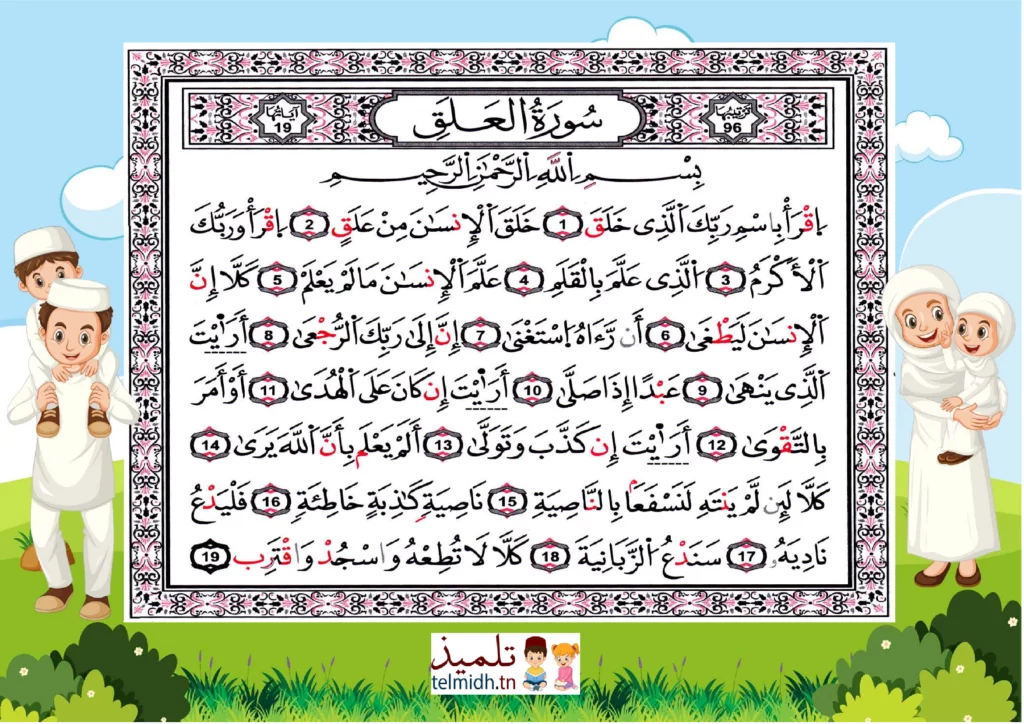 ترتيبها 96 سُورَةُ العَلَق آياتها 19
بِسْمِ اِ۬للَّهِ اِ۬لرَّحْمَٰنِ اِ۬لرَّحِيمِ
اِ۪قْرَأْ بِاسْمِ رَبِّكَ اَ۬لَّذِى خَلَقَ 1 خَلَقَ اَ۬لْإِنسَٰنَ مِنْ عَلَقٍ 2 اِ۪قْرَأْ وَرَبُّكَ
اَ۬لْأَكْرَمُ 3 اُ۬لَّذِى عَلَّمَ بِالْقَلَمِ 4 عَلَّمَ اَ۬لْإِنسَٰنَ مَا لَمْ يَعْلَمْ 5 كَلَّا إِنَّ
اَ۬لْإِنسَٰنَ لَيَطْغَىٰ 6 أَن رَّءَاهُ اُ۪سْتَغْنَىٰ 7 إِنَّ إِلَىٰ رَبِّكَ اَ۬لرُّجْعَىٰ 8 أَرَٰيْتَ
اَ۬لَّذِى يَنْهَىٰ 9 عَبْدًا إِذَا صَلَّىٰ 10 أَرَٰيْتَ إِن كَانَ عَلَى اَ۬لْهُدَىٰ 11 أَوْ أَمَرَ
بِالتَّقْوَىٰ 12 أَرَٰيْتَ إِن كَذَّبَ وَتَوَلَّىٰ 13 أَلَمْ يَعْلَم بِأَنَّ اَ۬للَّهَ يَرَىٰ 14
كَلَّا لَئِن لَّمْ يَنتَهِ لَنَسْفَعًا بِالنَّاصِيَةِ 15 نَاصِيَةٍ كَٰذِبَةٍ خَاطِئَةٍ 16 فَلْيَدْعُ
نَادِيَهُۥ 17 سَنَدْعُ اُ۬لزَّبَانِيَةَ 18 كَلَّا لَا تُطِعْهُ وَاسْجُدْ وَاقْتَرِب 19
تلميذ
telmidh.tn